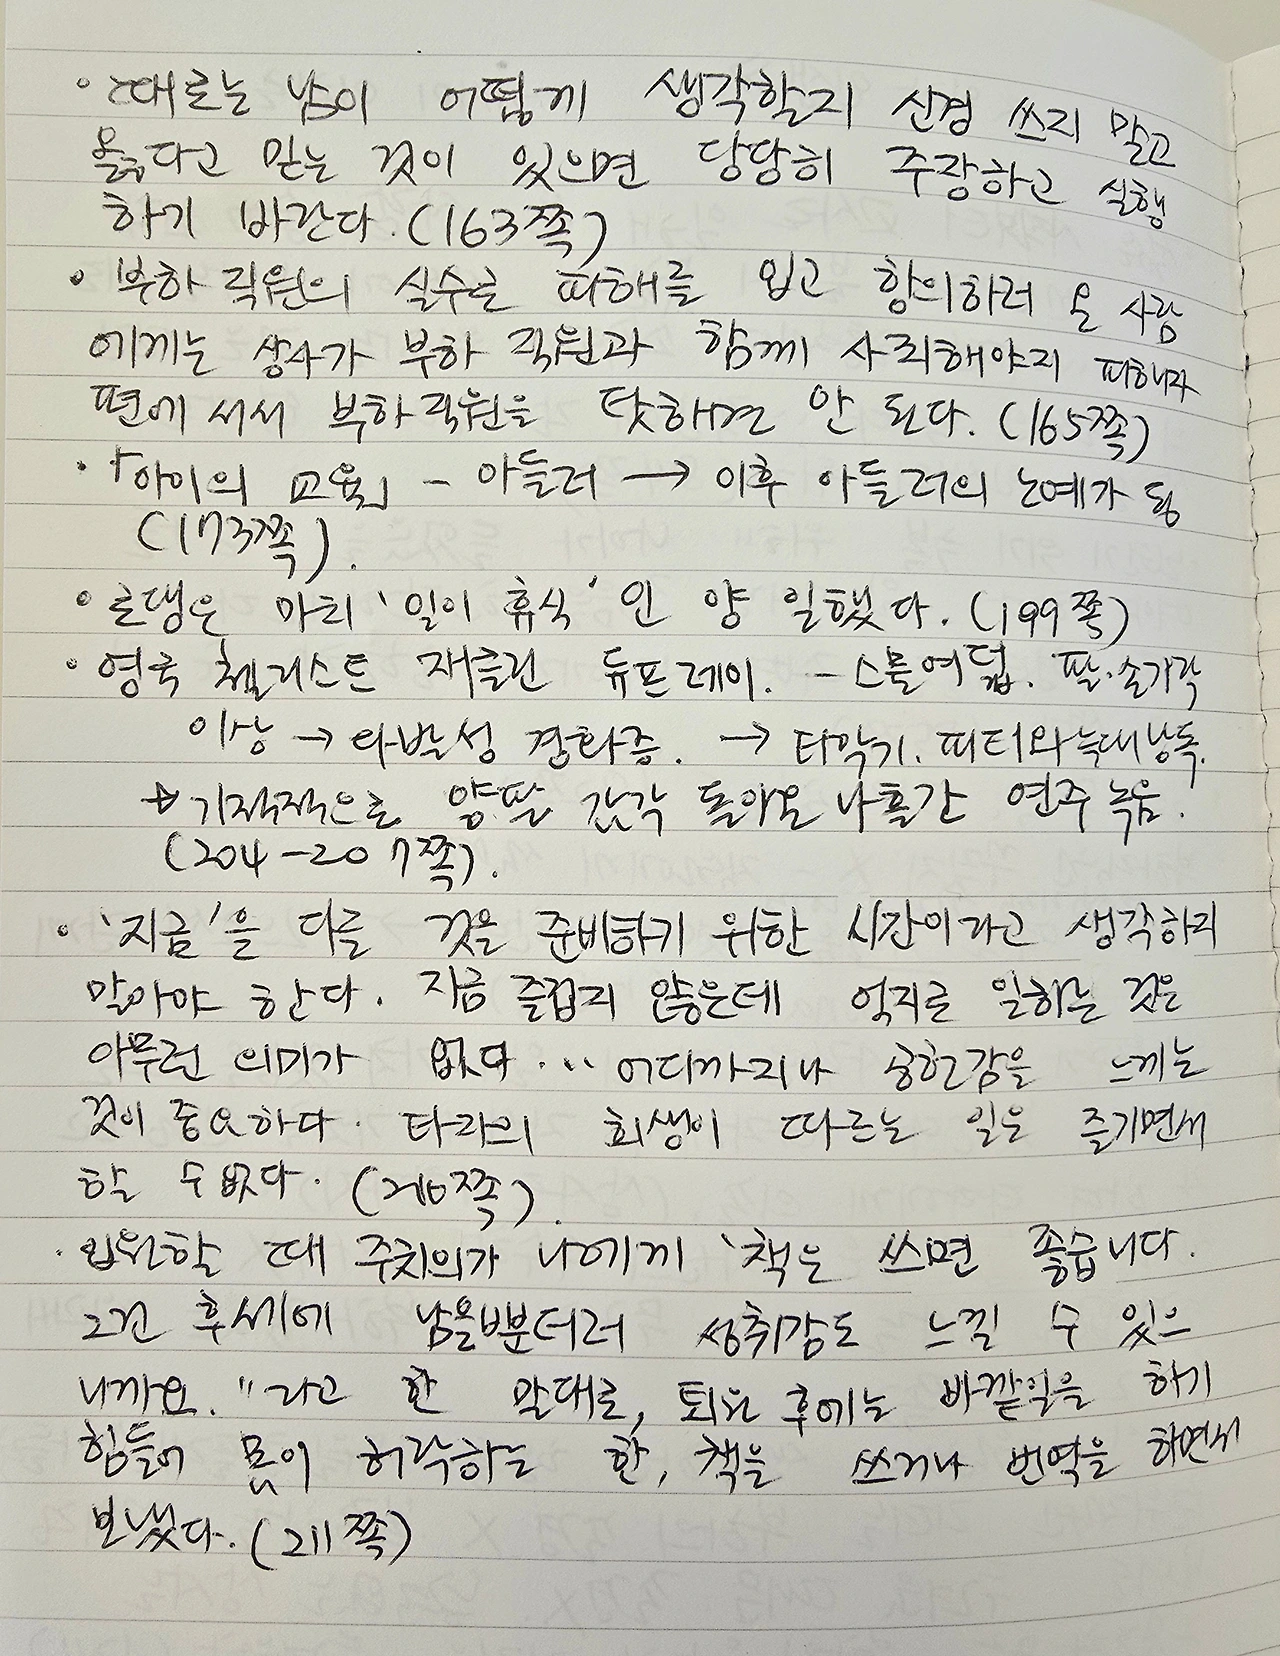 · 때로는 남이 어떻게 생각할지 신경 쓰지 말고
옳다고 믿는 것이 있으면 당당히 주장하고 실행
하기 바란다. (163쪽)
· 부하 직원의 실수로 피해를 입고 항의하러 온 사람
에게는 상사가 부하 직원과 함께 사죄해야지 피해자
편에 서서 부하직원을 탓하면 안 된다. (165쪽)
· 「아이의 교육」 - 아들러 → 이후 아들러의 논예가 됨
(173쪽).
· 로댕은 마치 '일이 휴식'인 양 일했다. (199쪽)
· 영국 첼리스트 재클린 듀프레이. - 스물여덟. 팔·손가락
이상 → 다발성 경화증. → 타악기. 피터와늑대낭독.
→ 기적적으로 양팔 감각 돌아온 나흘간 연주 녹음.
(204-207쪽).
· '지금'을 다른 것을 준비하기 위한 시간이라고 생각하지
말아야 한다. 지금 즐겁지 않은데 억지로 일하는 것은
아무런 의미가 없다... 어디까지나 공헌감을 느끼는
것이 중요하다. 타라의 희생이 따르는 일은 즐기면서
할 수 없다. (210쪽).
· 입원할 때 주치의가 나에게 '책은 쓰면 좋습니다.
그건 후세에 남을뿐더러 성취감도 느낄 수 있으
니까요."라고 한 말대로, 퇴원 후에는 바깥일을 하기
힘들어 몸이 허락하는 한, 책을 쓰거나 번역을 하면서
보냈다. (211쪽)